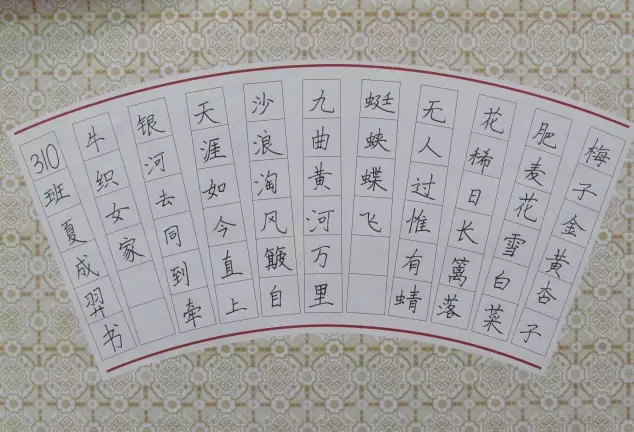 梅子金黄杏子
肥麦花雪白菜
花稀日长篱落
无人过惟有蜻
蜓蛱蝶飞
九曲黄河万里
沙浪淘风簸自
天涯如今直上
银河去同到牵
牛织女家
310班夏成羿书